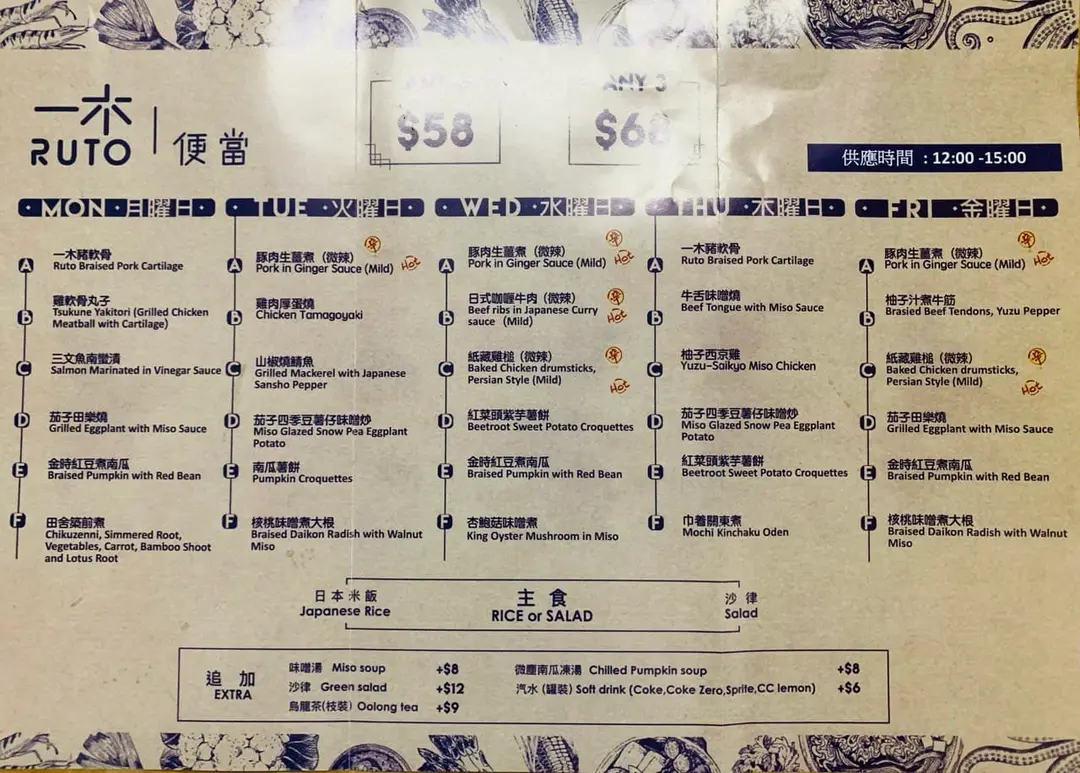 一木
RUTO
便當
$58
ANY 3
$68
供應時間 : 12:00 -15:00
MON · 月曜日
TUE · 火曜日
WED · 水曜日
THU · 木曜日
FRI · 金曜日
A
一木豬軟骨
Ruto Braised Pork Cartilage
B
雞軟骨丸子
Tsukune Yakitori (Grilled Chicken
Meatball with Cartilage)
C
三文魚南蠻漬
Salmon Marinated in Vinegar Sauce
D
茄子田樂燒
Grilled Eggplant with Miso Sauce
E
金時紅豆煮南瓜
Braised Pumpkin with Red Bean
F
田舍築前煮
Chikuzenni, Simmered Root,
Vegetables, Carrot, Bamboo Shoot
and Lotus Root
A
豚肉生薑煮（微辣）
Pork in Ginger Sauce (Mild)
辛
Hot
B
雞肉厚蛋燒
Chicken Tamagoyaki
C
山椒燒鯖魚
Grilled Mackerel with Japanese
Sansho Pepper
D
茄子四季豆薯仔味噌炒
Miso Glazed Snow Pea Eggplant
Potato
E
南瓜薯餅
Pumpkin Croquettes
F
核桃味噌煮大根
Braised Daikon Radish with Walnut
Miso
A
豚肉生薑煮（微辣）
Pork in Ginger Sauce (Mild)
辛
Hot
B
日式咖喱牛肉（微辣）
Beef ribs in Japanese Curry
sauce (Mild)
辛
Hot
C
紙藏雞槌（微辣）
Baked Chicken drumsticks,
Persian Style (Mild)
辛
Hot
D
紅菜頭紫芋薯餅
Beetroot Sweet Potato Croquettes
E
金時紅豆煮南瓜
Braised Pumpkin with Red Bean
F
杏鮑菇味噌煮
King Oyster Mushroom in Miso
A
一木豬軟骨
Ruto Braised Pork Cartilage
B
牛舌味噌燒
Beef Tongue with Miso Sauce
C
柚子西京雞
Yuzu-Saikyo Miso Chicken
D
茄子四季豆薯仔味噌炒
Miso Glazed Snow Pea Eggplant
Potato
E
紅菜頭紫芋薯餅
Beetroot Sweet Potato Croquettes
F
巾着關東煮
Mochi Kinchaku Oden
A
豚肉生薑煮（微辣）
Pork in Ginger Sauce (Mild)
辛
Hot
B
柚子汁煮牛筋
Brasied Beef Tendons, Yuzu Pepper
C
紙藏雞槌（微辣）
Baked Chicken drumsticks,
Persian Style (Mild)
辛
Hot
D
茄子田樂燒
Grilled Eggplant with Miso Sauce
E
金時紅豆煮南瓜
Braised Pumpkin with Red Bean
F
核桃味噌煮大根
Braised Daikon Radish with Walnut
Miso
日本米飯
Japanese Rice
主食
RICE or SALAD
沙律
Salad
追加
EXTRA
味噌湯 Miso soup +$8
沙律 Green salad +$12
烏龍茶(枝裝) Oolong tea +$9
微塵南瓜凍湯 Chilled Pumpkin soup +$8
汽水 (罐裝) Soft drink (Coke,Coke Zero,Sprite,CC lemon) +$6